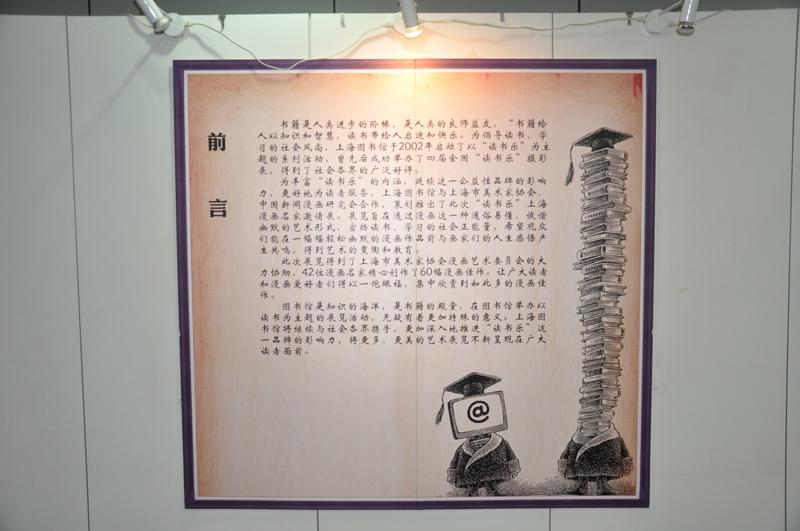 前言
书籍是人类进步的阶梯，是人类的良师益友，“书籍给
人以知识和智慧，读书带给人启迪和快乐。为倡导读书、学
习的社会风尚，上海图书馆于2002年启动了以“读书乐”为主
题的系列活动，曾先后成功举办了四届全国“读书乐”摄影
展，得到了社会各界的广泛好评。
为丰富“读书乐”的内涵，延续这一公益性品牌的影响
力，更好地为读者服务，上海图书馆与上海市美术家协会、
中国新闻漫画研究会合作，策划推出了此次“读书乐”上海
漫画名家邀请展。展览旨在通过漫画这一种通俗易懂、诙谐
幽默的艺术形式，宣扬读书、学习的社会正能量，希望观众
们能在一幅幅轻松幽默的漫画作品前与画家们的人生感悟产
生共鸣，得到艺术的熏陶和教育。
此次展览得到了上海市美术家协会漫画艺术委员会的大
力协助，42位漫画名家精心创作了60幅漫画佳作。让广大读者
和漫画爱好者们得以一饱眼福，集中欣赏到如此多的漫画佳
作。
图书馆是知识的海洋，是书籍的殿堂，在图书馆举办以
读书为主题的展览活动，无疑有着更加特殊的意义。上海图
书馆将继续与社会各界携手，更加深入地推进“读书乐”这
一品牌的影响力，将更多、更美的艺术展览不断呈现在广大
读者面前。
@